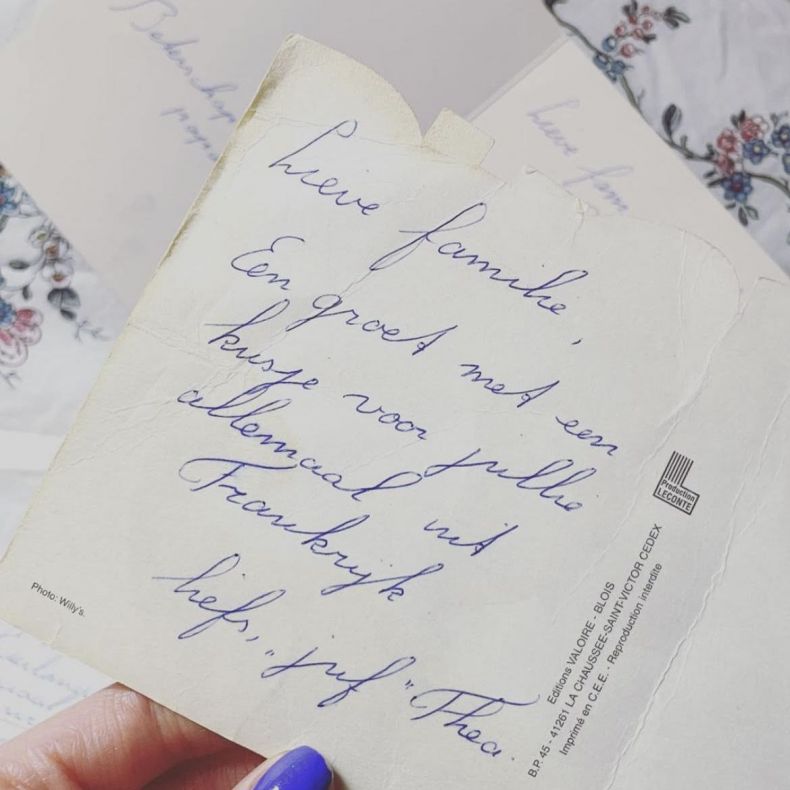 Lieve familie,
Een groet met een
kusje voor jullie
allemaal uit
Frankrijk
liefs, "juf" Thea.
Photo: Willy's.
Production
LECONTE
Editions VALOIRE - BLOIS
B.P. 45 - 41261 LA CHAUSSEE-SAINT-VICTOR CEDEX
Imprimé en C.E.E. - Reproduction interdite
Lieve fam